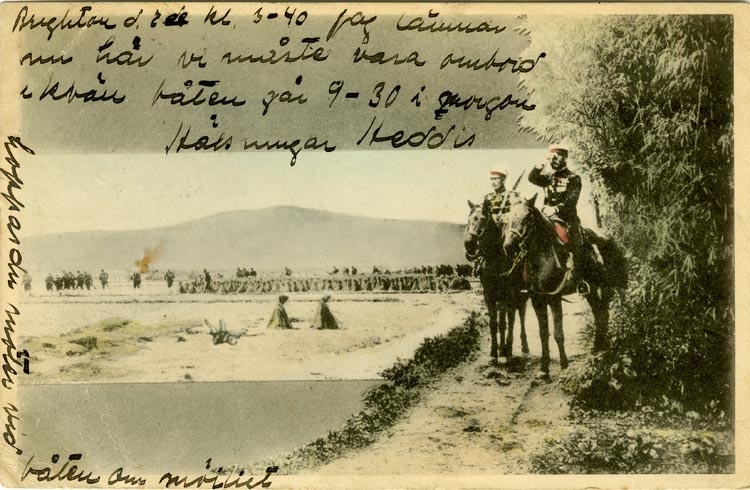 Brighton d. 2 de kl. 3-40 jag lämnar
nu här vi måste vara ombord
i kväll båten går 9-30 i morgon
Hälsningar Heddis
hoppardu möter vid
båten om möjligt